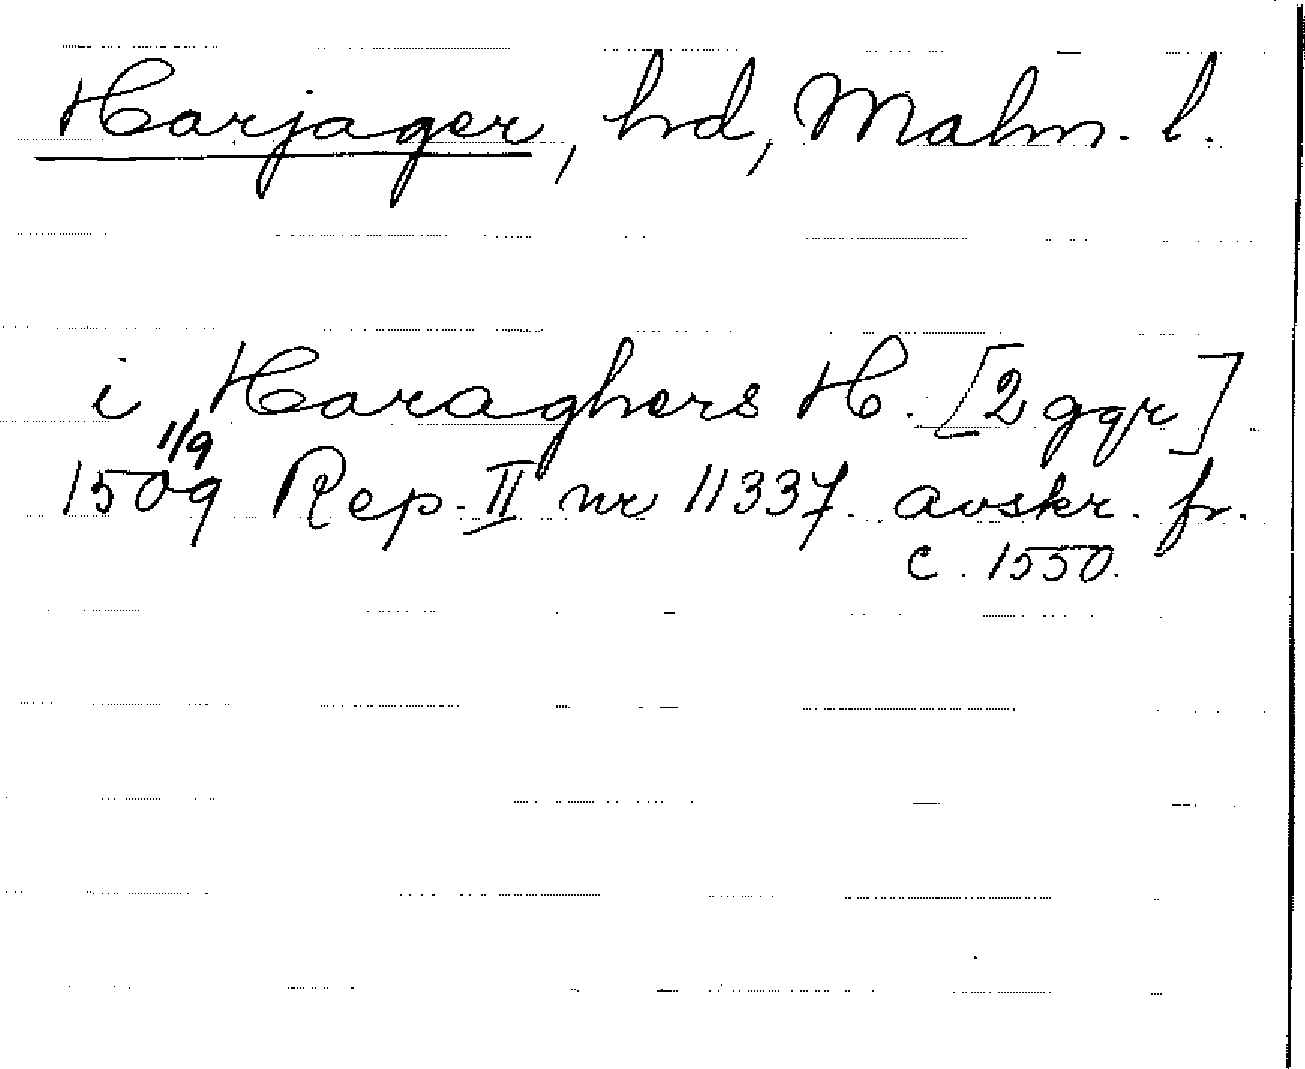 Harjager, hd, Malm. l.
i Haraghers H. [2 ggr]
1/9
1509 Rep. II nr 11337. avskr. fr.
c. 1550.